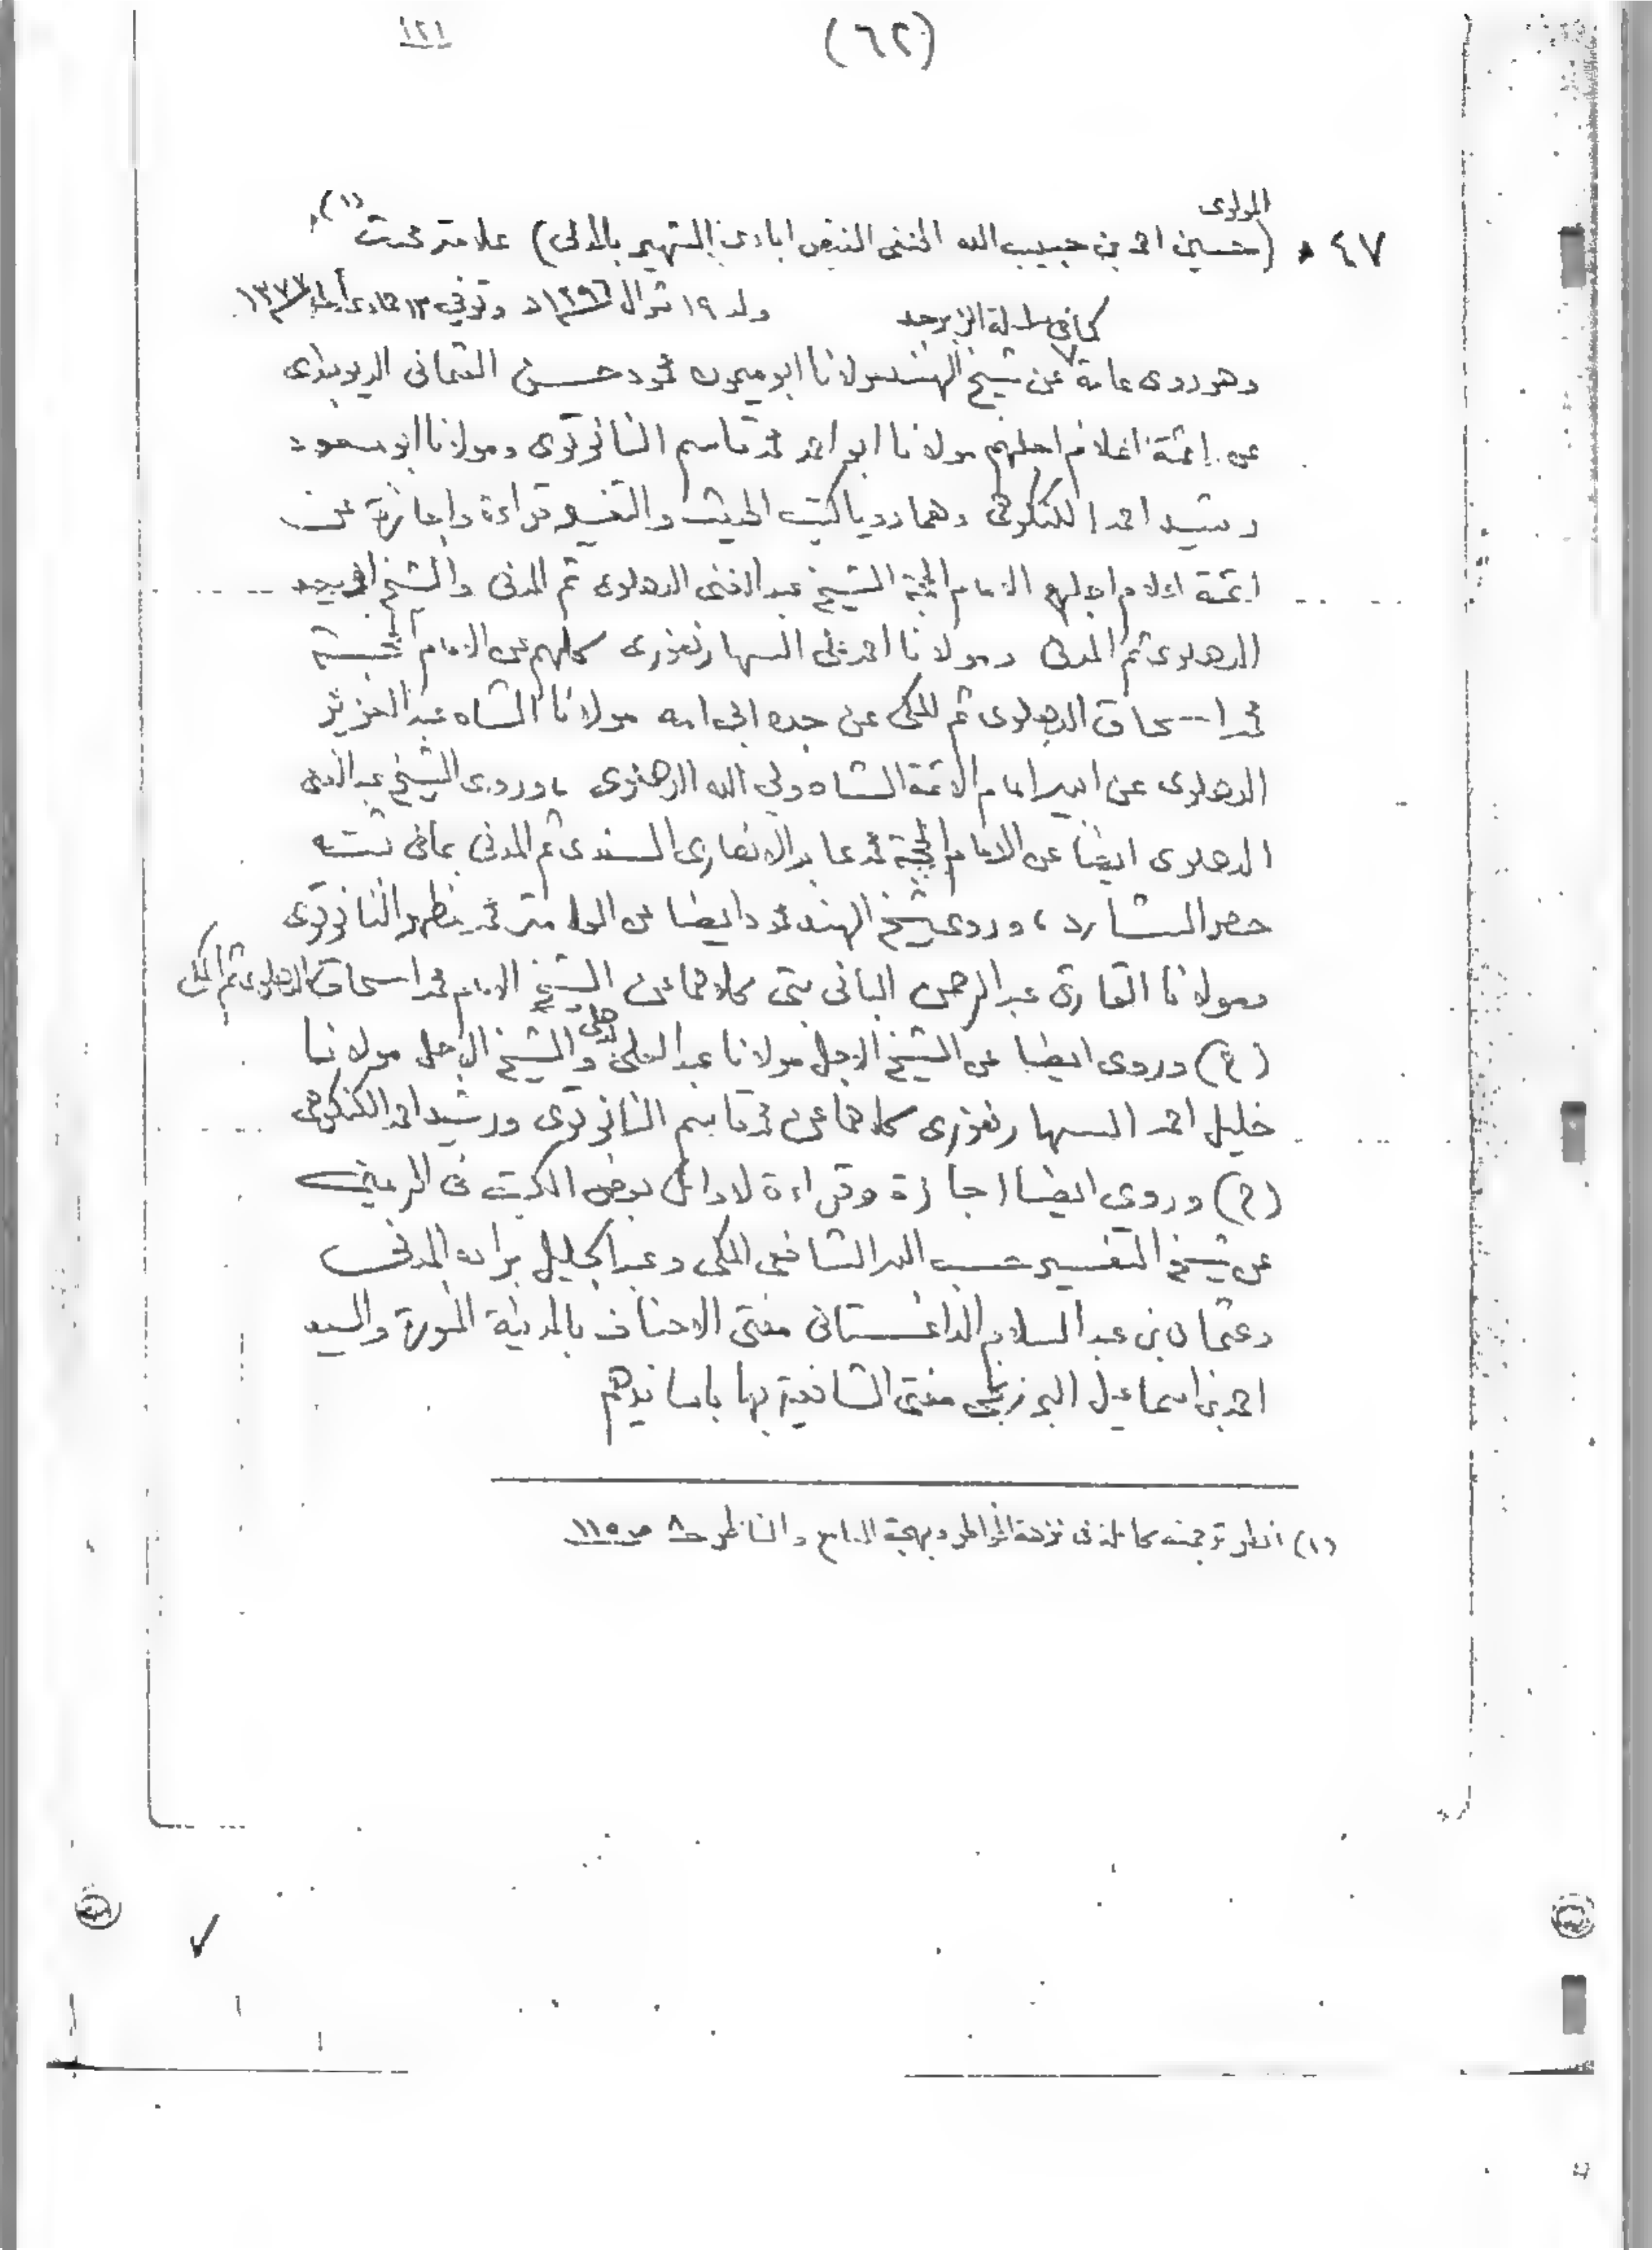 (٦٢)
١٢١
المولوى
٤٧ • (حسين احمد بن حبيب الله الحنفى الفيض ابادى الشهير بالمدنى) علامة محدث (١)
ولد ١٩ شوال ١٢٩٦ وتوفي ١٣ جمادى ١٣٧٧
كما فى سلسلة الزبرجد
وهو روى عامة عن شيخ الهند مولانا ابو ميمون محمود حسن العثمانى الديوبندى
عن ائمة اعلام اجلهم مولانا ابو احمد محمد قاسم النانوتوى ومولانا ابو مسعود
رشيد احمد الكنكوهى وهما رويا كتب الحديث والتفسير قراءة واجازة عن
ائمة اعلام اجلهم الامام الحجة الشيخ عبد الغنى الدهلوى ثم المدنى والشيخ
الدهلوى ثم المدنى ومولانا احمد على السهارنفورى كلهم عن الامام الحجة
محمد اسحاق الدهلوى ثم المكى عن جده ابى امه مولانا الشاه عبد العزيز
الدهلوى عن ابيه امام الائمة الشاه ولي الله الدهلوى ، وروى الشيخ عبد الغنى
الدهلوى ايضا عن الامام الحجة محمد عابد الانصارى السندى ثم المدنى بما فى ثبته
حصر الشارد ، وروى شيخ الهند محمود ايضا عن العلامة محمد مظهر النانوتوى
ومولانا القارى عبد الرحمن البانى بتى كلاهما عن الشيخ الامام محمد اسحاق الدهلوى ثم المكى
(ع) وروى ايضا عن الشيخ الاجل مولانا عبد العلى والشيخ الاجل مولانا
خليل احمد السهارنفورى كلاهما عن محمد قاسم النانوتوى ورشيد احمد الكنكوهى
(ح) وروى ايضا اجازة وقراءة لاوائل بعض الكتب فى الحرمين
عن شيخ التفسير حسب الله الشافعى المكى وعبد الجليل براده المدنى
وعثمان بن عبد السلام الداغستانى مفتى الاحناف بالمدينة المنورة والسيد
احمد بن اسماعيل البرزنجى مفتى الشافعية بها باسانيدهم
(١) انظر ترجمته كاملة فى نزهة الخواطر وبهجة المسامع والنواظر ح٨ ص ١١٥